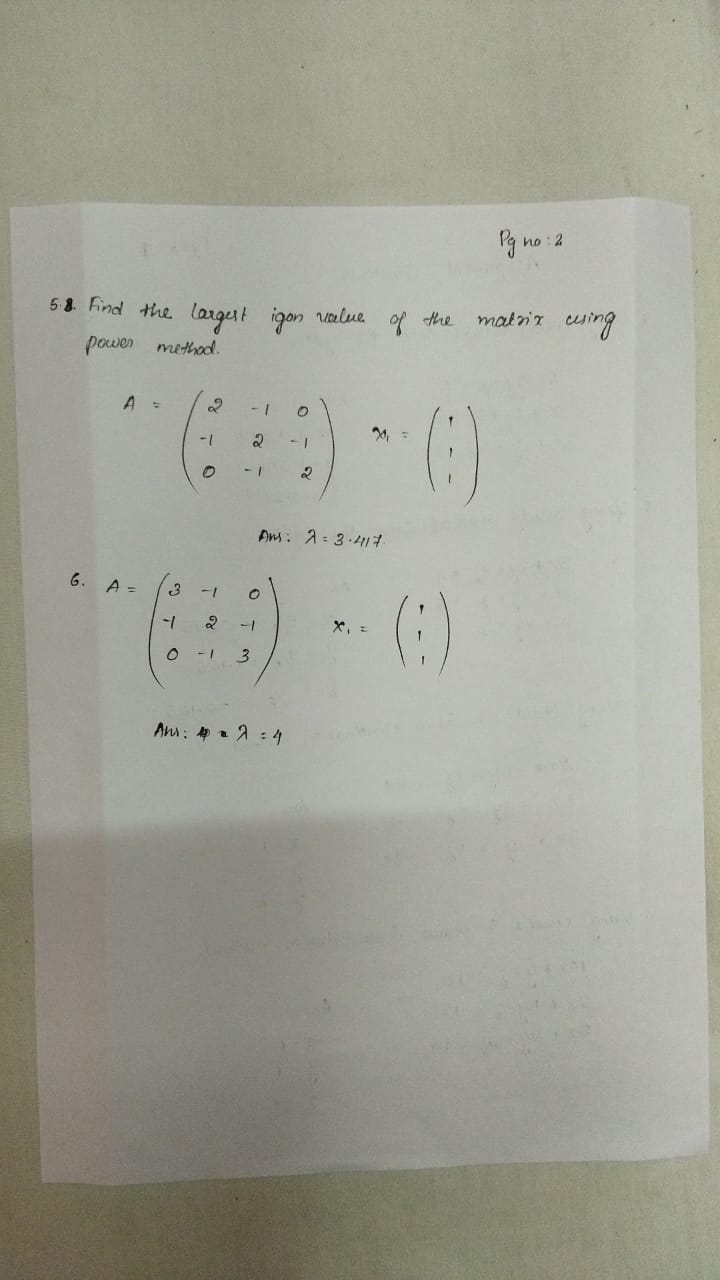 Pg no : 2
5. Find the largest igon value of the matrix using
power method.
A = ( 2 -1 0
-1 2 -1
0 -1 2 ) x₁ = ( 1
1
1 )
Ans : λ = 3.417.
6. A = ( 3 -1 0
-1 2 -1
0 -1 3 ) x₁ = ( 1
1
1 )
Ans : λ = 4